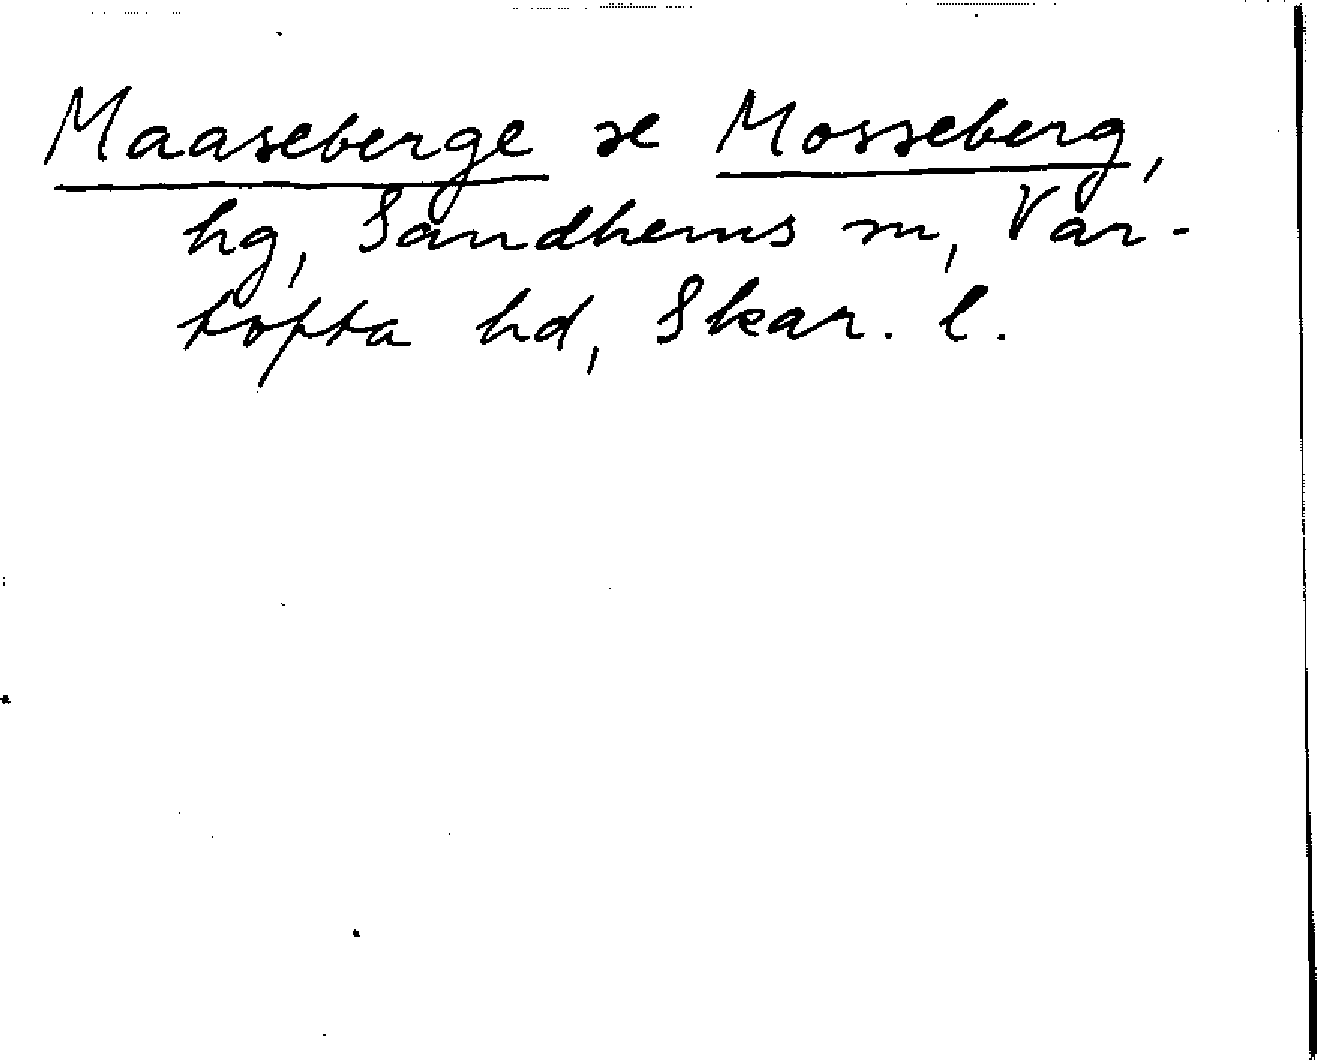 Maaseberge se Mosseberg,
hg, Sandhems sn, Var-
tofta hd, Skar. l.